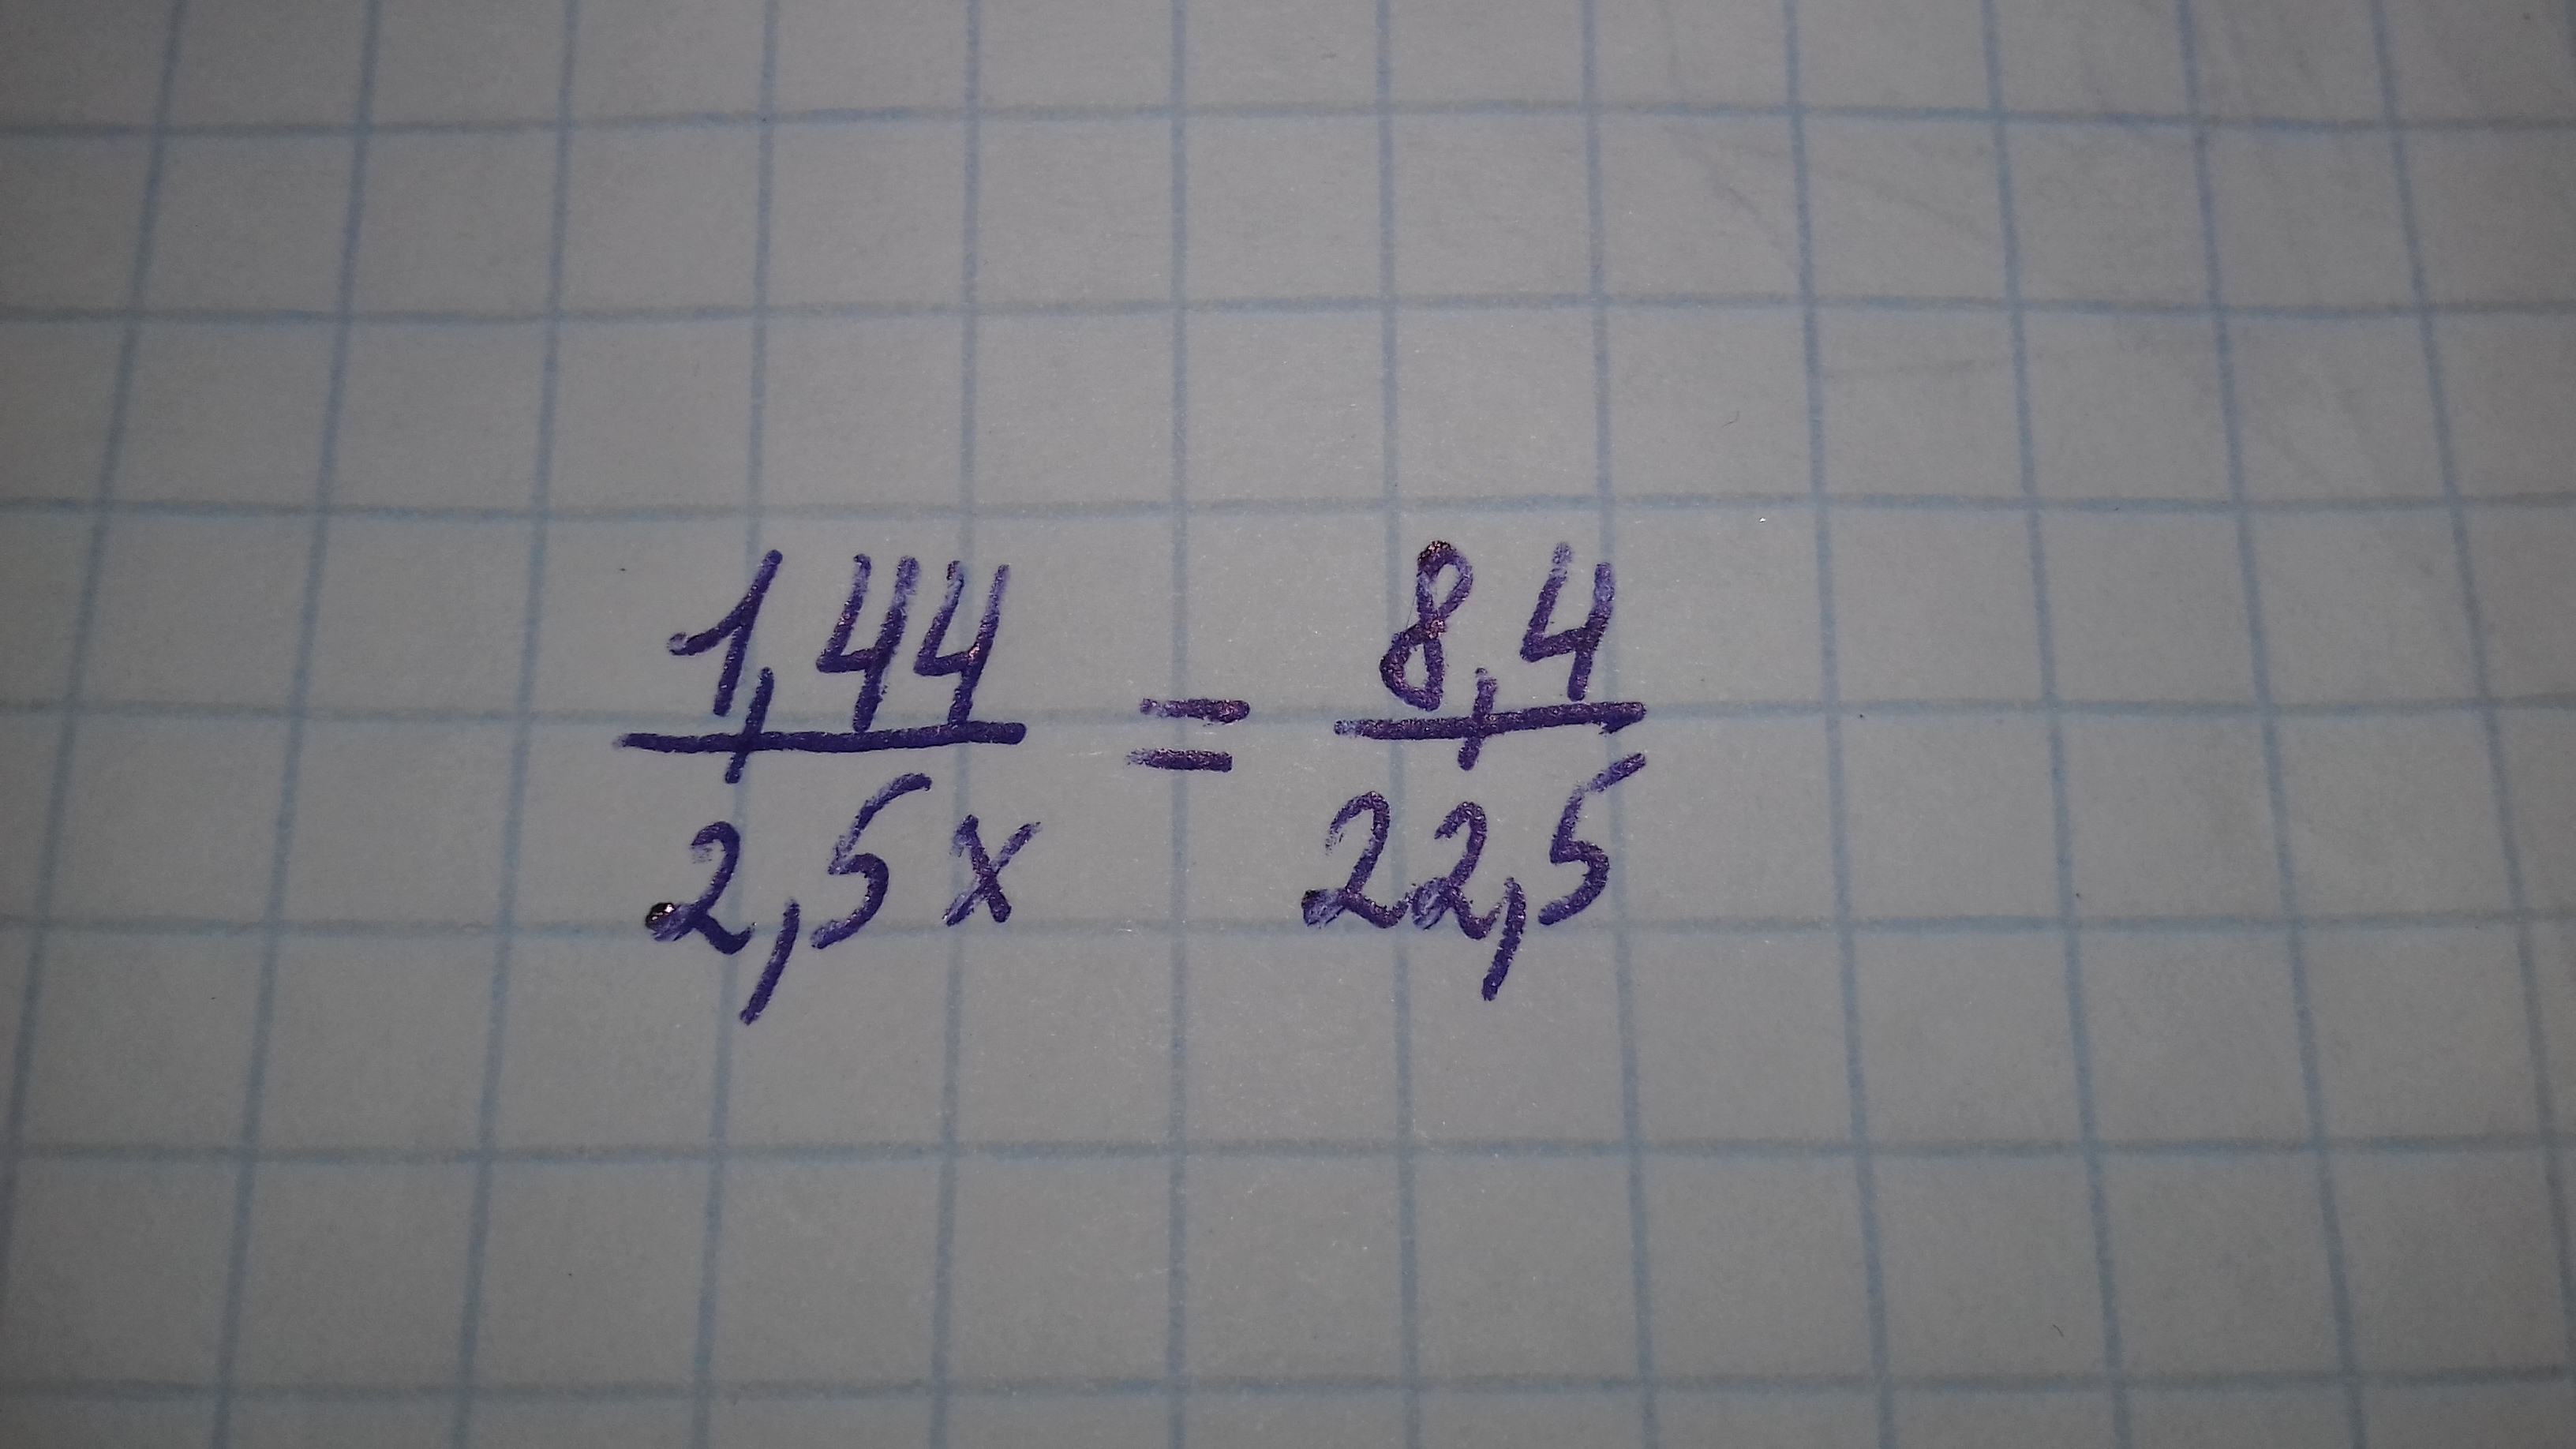 1,44 = 8,4
2,5x 22,5